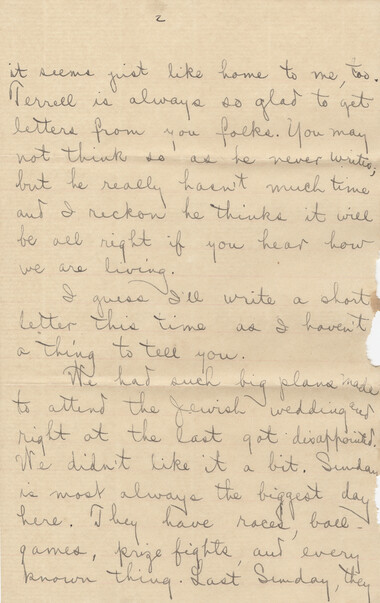 2
it seems just like home to me, too.
Terrell is always so glad to get
letters from you folks. You may
not think so, as he never writes,
but he really hasn't much time
and I reckon he thinks it will
be all right if you hear how
we are living.
I guess I'll write a short
letter this time as I haven't
a thing to tell you.
We had such big plans made
to attend the Jewish wedding and
right at the last got disappointed.
We didn't like it a bit. Sunday
is most always the biggest day
here. They have races, ball-
games, prize fights, and every
known thing. Last Sunday, they